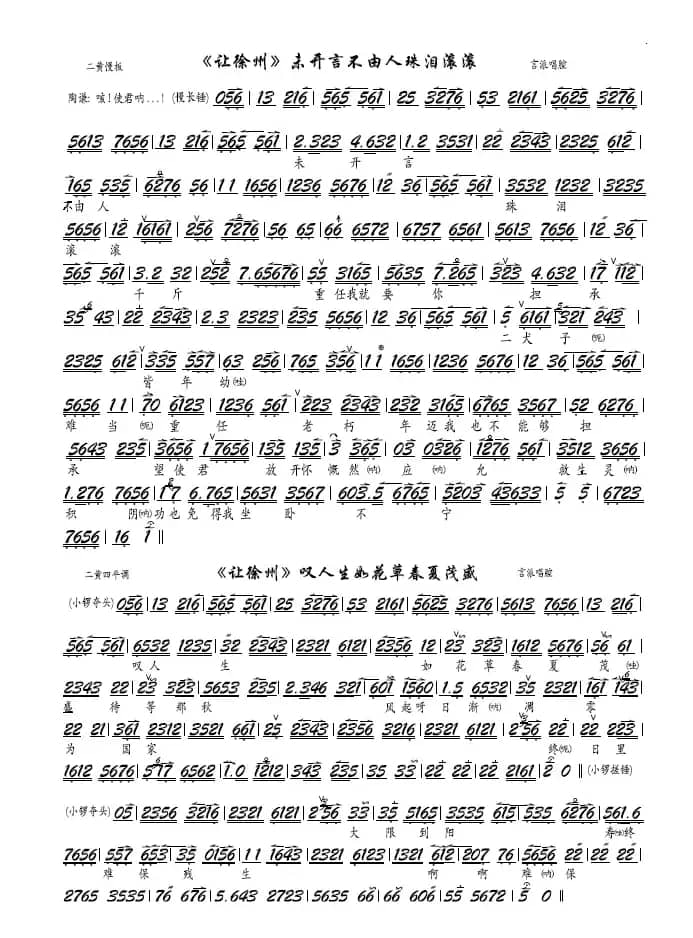 二黄慢板 《让徐州》未开言不由人珠泪滚滚 言派唱腔
陶谦: 咳!使君呐...! (慢长锤) 056 | 13 216 | 565 561 | 25 3276 | 53 2161 | 5625 3276 |
5613 7656 | 13 216 | 565 561 | 2.323 4.632 | 1.2 3531 | 22 2343 | 2325 612 |
未 开 言
165 535 | 6276 56 | 11 1656 | 1236 5676 | 12 36 | 565 561 | 3532 1232 | 3235
不由 人 珠 泪
5656 | 12 16161 | 256 7276 | 56 65 | 66 6572 | 6757 6561 | 5613 7656 | 12 36 |
滚 滚
565 561 | 3.2 32 | 252 7.65676 | 55 3165 | 5635 7.265 | 323 4.632 | 17 112 |
千 斤 重 任我就 要 你 担 承
35 43 | 22 2343 | 2.3 2323 | 235 5656 | 12 36 | 565 561 | 5 6161 | 321 243 |
二 犬 子 (呃)
2325 612 | 335 557 | 63 256 | 765 356 | 11 1656 | 1236 5676 | 12 36 | 565 561 |
皆 年 幼
5656 11 | 70 6123 | 1236 561 | 223 2343 | 232 3165 | 6765 3567 | 52 6276 |
难 当 (呃) 重 任 老 朽 年 迈我 也 不 能 够 担
5643 235 | 3656 17656 | 135 135 | 3 365 | 03 0326 | 1276 561 | 3512 3656 |
承 望 使 君 放 开怀 慨 然 (呐) 应 (呐) 允 放 生 灵 (呐)
1.276 7656 | 17 6.765 | 5631 3567 | 603.5 6765 | 5203 43633 | 5 5 | 6723
积 阴 (呐) 功也 免 得我 坐 卧 不 宁
7656 | 16 1 ‖
二黄四平调 《让徐州》叹人生如花草春夏茂盛 言派唱腔
(小锣夺头) 056 | 13 216 | 565 561 | 25 3276 | 53 2161 | 5625 3276 | 5613 7656 | 13 216 |
565 561 | 6532 1235 | 32 2343 | 2321 6121 | 2356 12 | 23 323 | 1612 5676 | 56 61 |
叹 人 生 如 花 草 春 夏 茂
2343 22 | 23 323 | 5653 235 | 2.346 321 | 601 1560 | 1.5 6532 | 35 2321 | 161 143 |
盛 待 等 那 秋 风起呀 日 渐 (呐) 凋 零
22 21 | 361 2312 | 3521 661 | 25 2343 | 2356 3216 | 2321 6121 | 256 22 | 22 223 |
为 国 家 终 (呃) 日 里
1612 5676 | 517 6562 | 1.0 1212 | 343 235 | 35 35 | 22 22 | 22 2161 | 2 0 ‖ (小锣搓锤)
(小锣夺头) 05 | 2356 3216 | 2321 6121 | 256 33 | 35 5165 | 3535 615 | 535 6276 | 561.6
大 限 到 阳 寿 终
7656 | 557 653 | 35 0156 | 11 1643 | 2321 6123 | 1321 612 | 207 76 | 5656 22 | 22 22 |
难 保 残 生 啊 啊 难 (呐) 保
2765 3535 | 76 676 | 5.643 2723 | 5635 66 | 66 606 | 55 5672 | 5 0 ‖